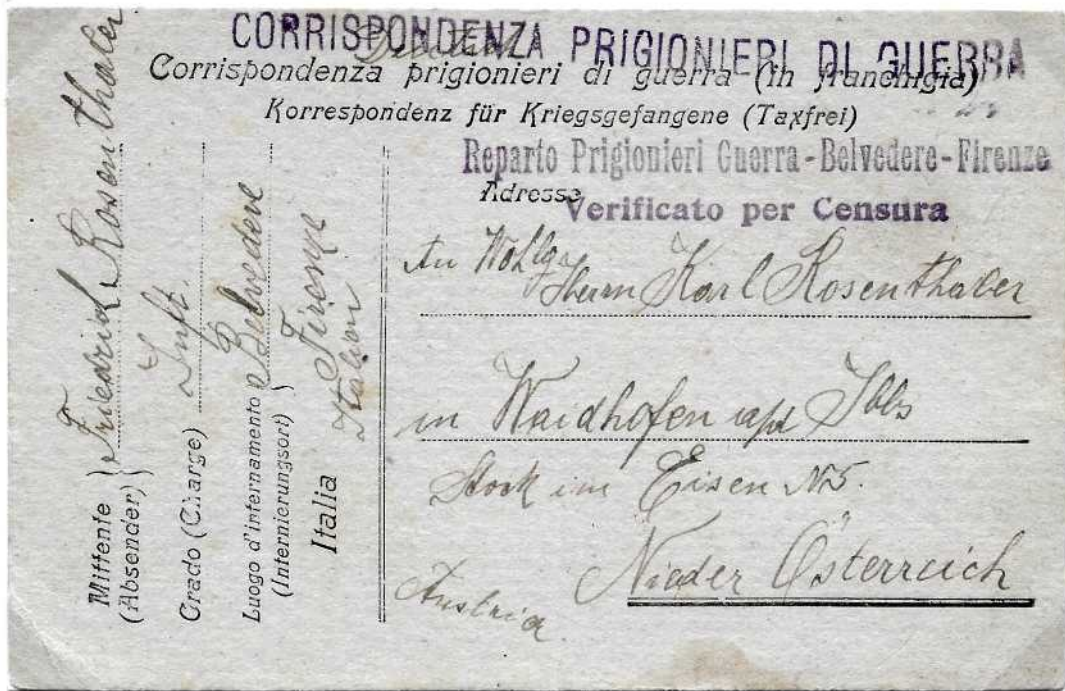 CORRISPONDENZA PRIGIONIERI DI GUERRA
Corrispondenza prigionieri di guerra (in franchigia)
Korrespondenz für Kriegsgefangene (Taxfrei)
Reparto Prigionieri Guerra - Belvedere - Firenze
Adresse
Verificato per Censura
An Wohlg.
Herrn Karl Rosenthaler
in Waidhofen a/d Ybbs
Stock im Eisen N5.
Nieder Österreich
Austria.
Mittente } Friedrich Rosenthaler
(Absender)
Grado (Charge) Inft.
Luogo d'internamento } Belvedere
(Internierungsort) } Firenze
Italia Italien